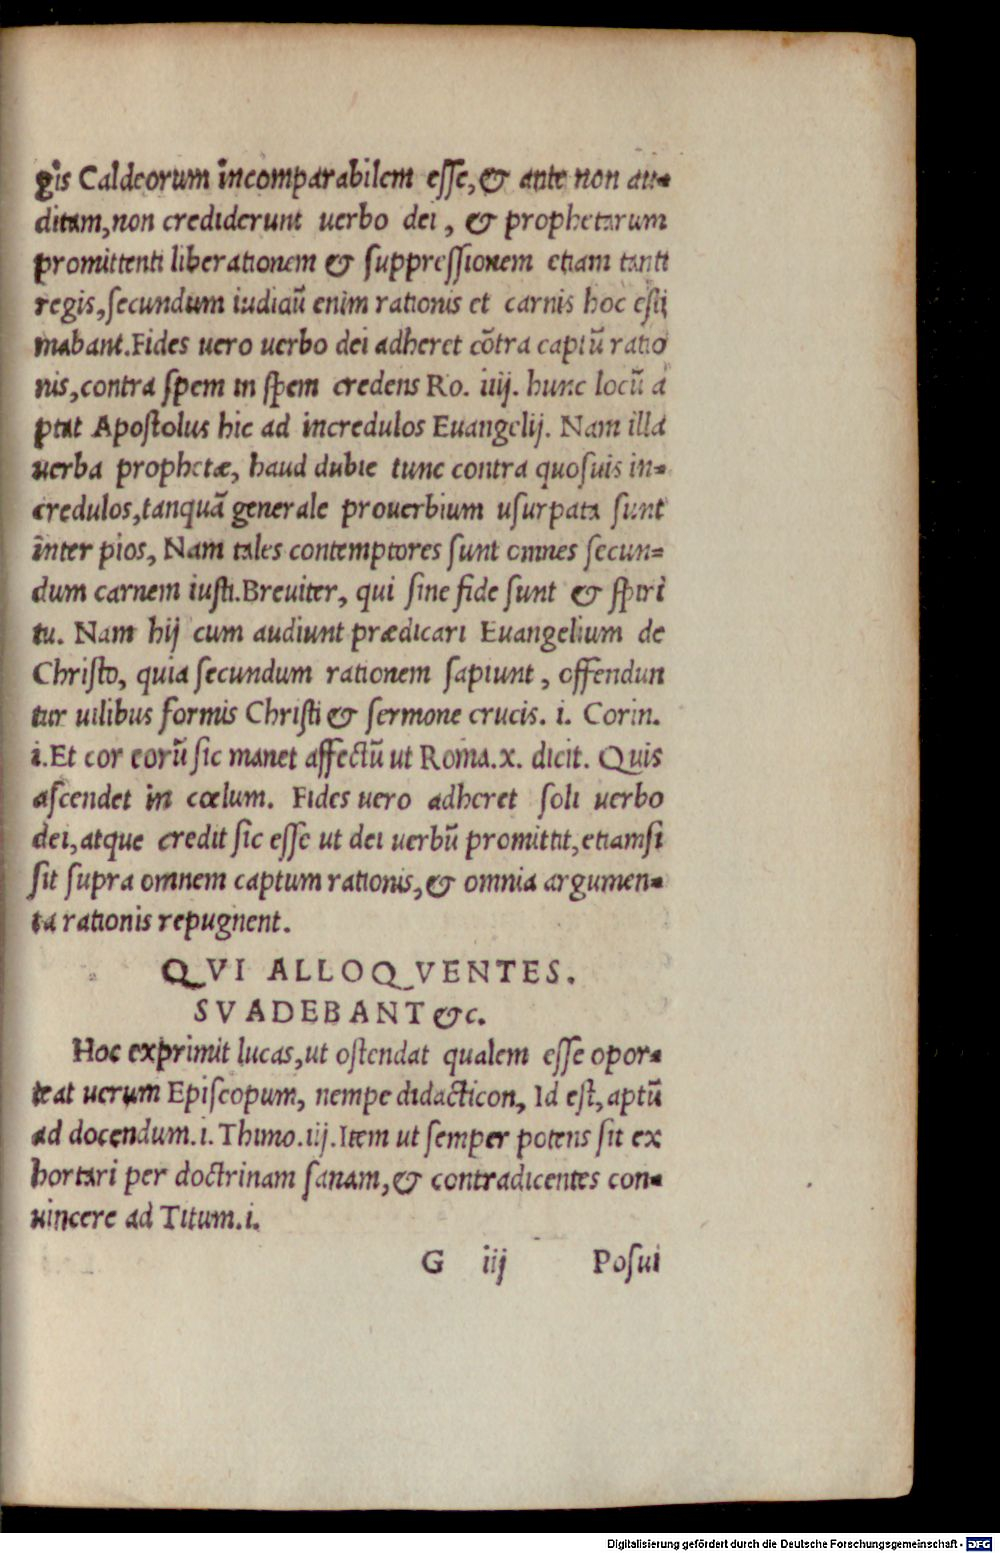 gis Caldeorum incomparabilem esse, & ante non au-
ditam, non crediderunt uerbo dei, & prophetarum
promittenti liberationem & suppressionem etiam tanti
regis, secundum iudiciū enim rationis et carnis hoc esti
mabant. Fides uero uerbo dei adheret cōtra captū ratio
nis, contra spem in spem credens Ro. iiij. hunc locū a
ptat Apostolus hic ad incredulos Euangelij. Nam illa
uerba prophetæ, haud dubie tunc contra quosuis in-
credulos, tanquā generale prouerbium usurpata sunt
inter pios, Nam tales contemptores sunt omnes secun-
dum carnem iusti. Breuiter, qui sine fide sunt & spiri
tu. Nam hij cum audiunt prædicari Euangelium de
Christo, quia secundum rationem sapiunt, offendun
tur uilibus formis Christi & sermone crucis. i. Corin.
i. Et cor eorū sic manet affectū ut Roma. x. dicit. Quis
ascendet in cœlum. Fides uero adheret soli uerbo
dei, atque credit sic esse ut dei uerbū promittit, etiamsi
sit supra omnem captum rationis, & omnia argumen-
ta rationis repugnent.
QVI ALLOQVENTES.
SVADEBANT &c.
Hoc exprimit lucas, ut ostendat qualem esse opor-
teat uerum Episcopum, nempe didacticon, Id est, aptū
ad docendum. i. Thimo. iij. Item ut semper potens sit ex
hortari per doctrinam sanam, & contradicentes con-
uincere ad Titum. i.
G iij Posui
Digitalisierung gefördert durch die Deutsche Forschungsgemeinschaft - DFG